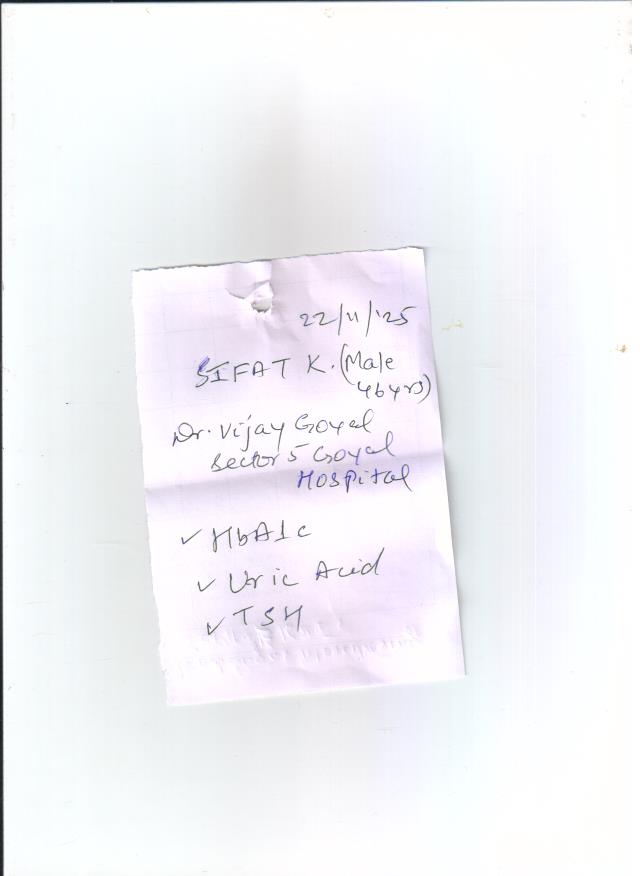 22/11/'25
SIFAT K. (Male
46 yrs)
Dr. Vijay Goyal
Sector 5 Goyal
Hospital
✓ HbA1c
✓ Uric Acid
✓ TSH